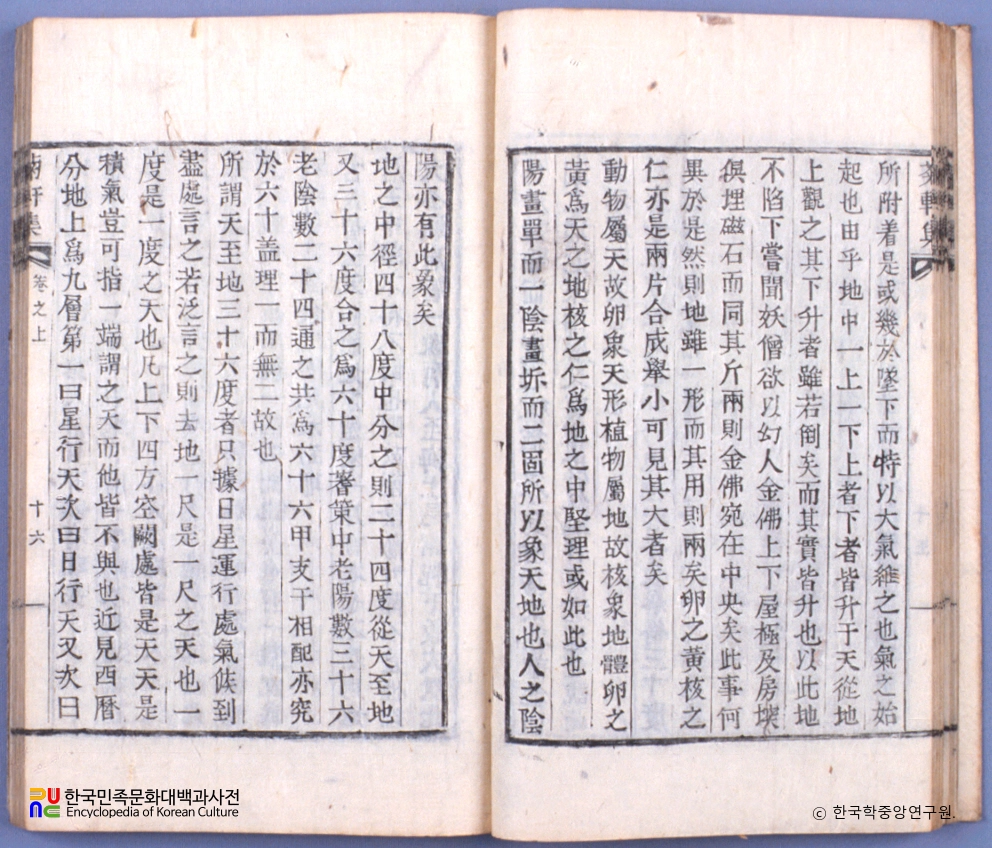 所附着是或幾於墜下而特以大氣維之也氣之始
起也由乎地中一上一下上者下者皆升于天從地
上觀之其下升者雖若倒矣而其實皆升也以此地
不陷下嘗聞妖僧欲以幻人金佛上下屋極及房堗
俱埋磁石而同其斤兩則金佛宛在中央矣此事何
異於是然則地雖一形而其用則兩矣卵之黃核之
仁亦是兩片合成舉小可見其大者矣
動物屬天故卵象天形植物屬地故核象地體卵之
黃爲天之地核之仁爲地之中堅理或如此也
陽畫單而一陰畫坼而二固所以象天地也人之陰
陽亦有此象矣
地之中徑四十八度中分之則二十四度從天至地
又三十六度合之爲六十度蓍策中老陽數三十六
老陰數二十四通之共爲六十六甲支干相配亦究
於六十盖理一而無二故也
所謂天至地三十六度者只據日星運行處氣候到
盡處言之若泛言之則去地一尺是一尺之天也一
度是一度之天也凡上下四方空闕處皆是天天是
積氣豈可指一端謂之天而他皆不與也近見西曆
分地上爲九層第一曰星行天次曰日行天又次曰
軒集
卷之上
十六
한국민족문화대백과사전
Encyclopedia of Korean Culture
© 한국학중앙연구원.